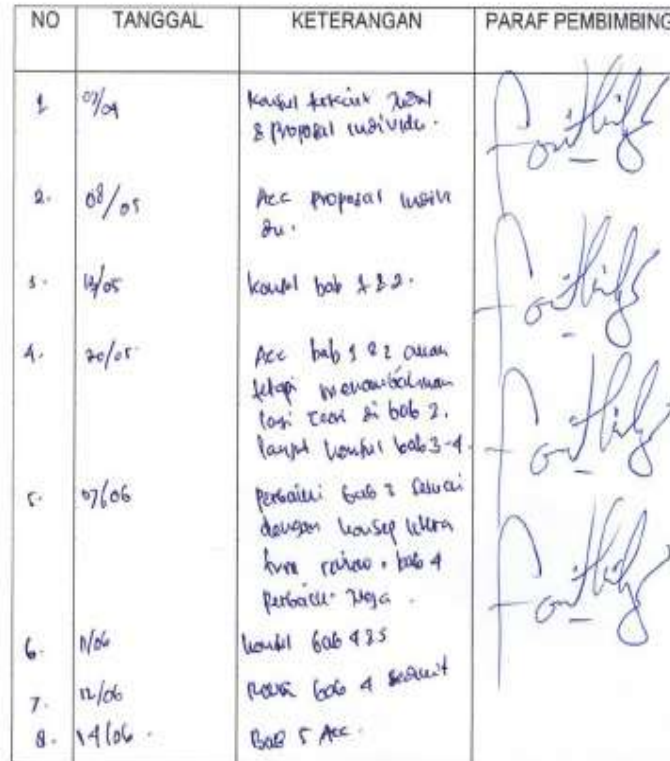 NO TANGGAL KETERANGAN PARAF PEMBIMBING
1 07/04 konsul terkait judul
& proposal individu.
2. 08/05 Acc proposal indivi
du.
3. 13/05 konsul bab 1 & 2.
4. 20/05 Acc bab 1 & 2 akan
tetapi menambahkan
lagi teori di bab 2.
lanjut konsul bab 3-4.
5. 07/06 perbaiki bab 3 sesuai
dengan konsep
bab 4
perbaiki juga.
6. 11/06 konsul bab 4 & 5
7. 12/06 bab 4
8. 14/06. BAB 5 Acc.